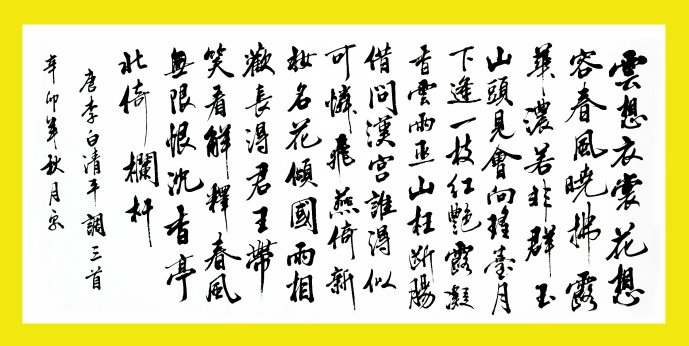 雲想衣裳花想
容春風曉拂露
華濃若非群玉
山頭見會向瑤臺月
下逢一枝紅艷露凝
香雲雨巫山枉斷腸
借問漢宮誰得似
可憐飛燕倚新
妝名花傾國兩相
歡長得君王帶
笑看解釋春風
無限恨沈香亭
北倚欄杆
唐李白清平調三首
辛卯年秋月